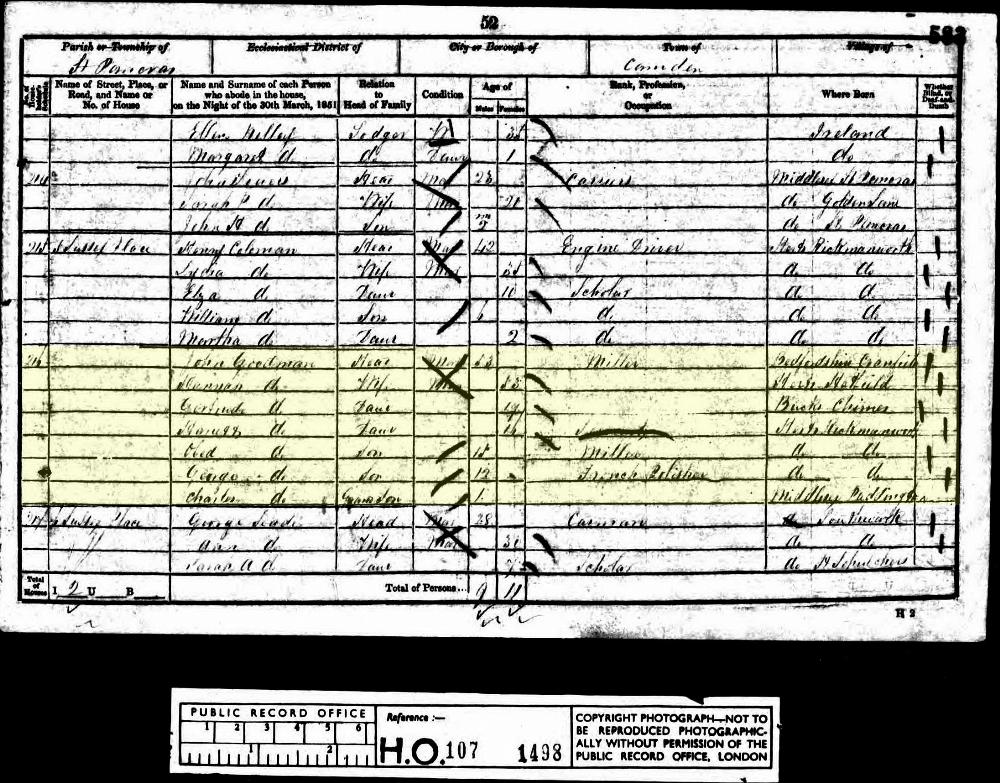 52
583
Parish or Township of Ecclesiastical District of City or Borough of Town of Village of
St Pancras Camden
Name of Street, Place, or Road, and Name or No. of House
Name and Surname of each Person who abode in the house, on the Night of the 30th March, 1851
Relation to Head of Family
Condition
Age of
Males Females
Rank, Profession, or Occupation
Where Born
Whether Blind, or Deaf-and-Dumb
Ellen Lodger Ireland
Margaret do do Daur 1 do
Head Mar 23 Middlesex St Pancras
Sarah do Wife Mar 20 do Golden Lane
John H do Son do St Pancras
215 Sussex Place Henry Coleman Head Mar 42 Engine Driver Herts Rickmansworth
Lydia do Wife Mar do do
Eliza do Daur 10 Scholar do do
William do Son 6 do do do
Martha do Daur 2 do do do
216 John Goodman Head Mar 53 Miller Bedfordshire Cranfield
Hannah do Wife Mar 53 Herts Hatfield
Gertrude do Daur 19 Bucks
do Daur 16 Herts Rickmansworth
do Son 15 Miller do do
George do Son 12 French Polisher do do
Charles do Grand Son 1 Middlesex Paddington
217 Sussex Place George Head Mar 28 Carman do Southwark
Ann do Wife Mar 30 do do
Sarah A do Daur Scholar do
Total of Houses I 2 U B Total of Persons... 9 11
H 2
PUBLIC RECORD OFFICE
1 2 3 4 5 6
1 2
Reference :—
H.O. 107 1498
COPYRIGHT PHOTOGRAPH—NOT TO
BE REPRODUCED PHOTOGRAPHIC-
ALLY WITHOUT PERMISSION OF THE
PUBLIC RECORD OFFICE, LONDON